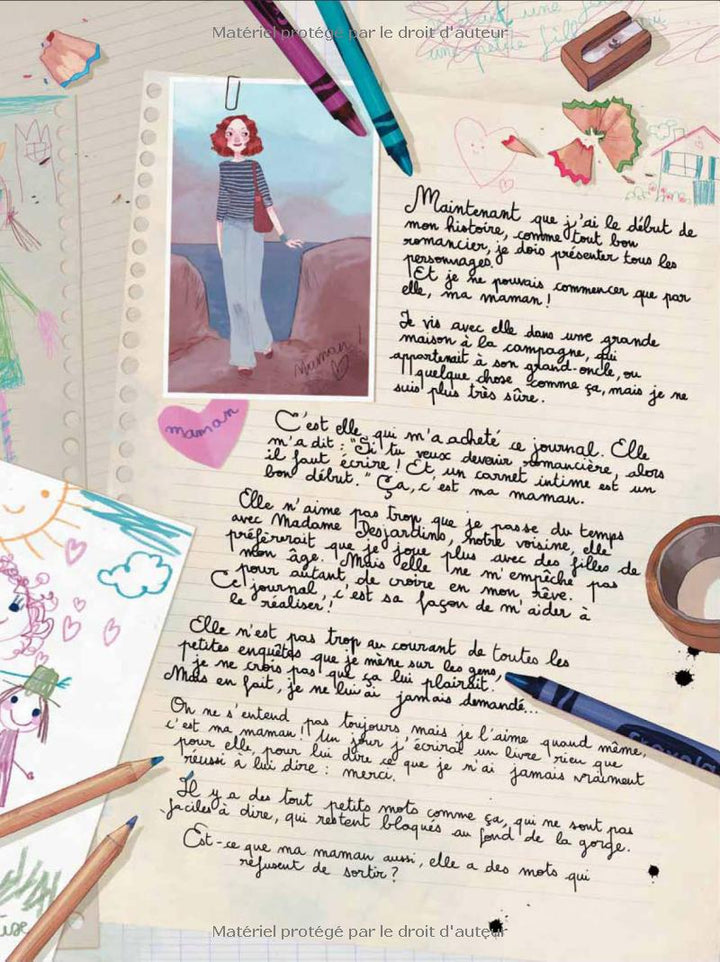 Matériel protégé par le droit d'auteur
était une
une petite fille
Maintenant que j'ai le début de
mon histoire, comme tout bon
romancier, je dois présenter tous les
personnages.
Et je ne pouvais commencer que par
elle, ma maman !
Je vis avec elle dans une grande
maison à la campagne, qui
appartenait à son grand-oncle, ou
quelque chose comme ça, mais je ne
suis plus très sûre.
Maman !
maman
C'est elle qui m'a acheté ce journal. Elle
m'a dit : "Si tu veux devenir romancière, alors
il faut écrire ! Et un carnet intime est un
bon début." Ça, c'est ma maman.
Elle n'aime pas trop que je passe du temps
avec Madame Desjardins, notre voisine, elle
préférerait que je joue plus avec des filles de
mon âge. Mais elle ne m'empêche pas
pour autant de croire en mon rêve.
Ce journal, c'est sa façon de m'aider à
le réaliser !
Elle n'est pas trop au courant de toutes les
petites enquêtes que je mène sur les gens,
je ne crois pas que ça lui plairait.
Mais en fait, je ne lui ai jamais demandé...
On ne s'entend pas toujours mais je l'aime quand même,
c'est ma maman ! Un jour j'écrirai un livre rien que
pour elle, pour lui dire ce que je n'ai jamais vraiment
réussi à lui dire : merci.
Il y a des tout petits mots comme ça, qui ne sont pas
faciles à dire, qui restent bloqués au fond de la gorge.
Est-ce que ma maman aussi, elle a des mots qui
refusent de sortir ?
Matériel protégé par le droit d'auteur